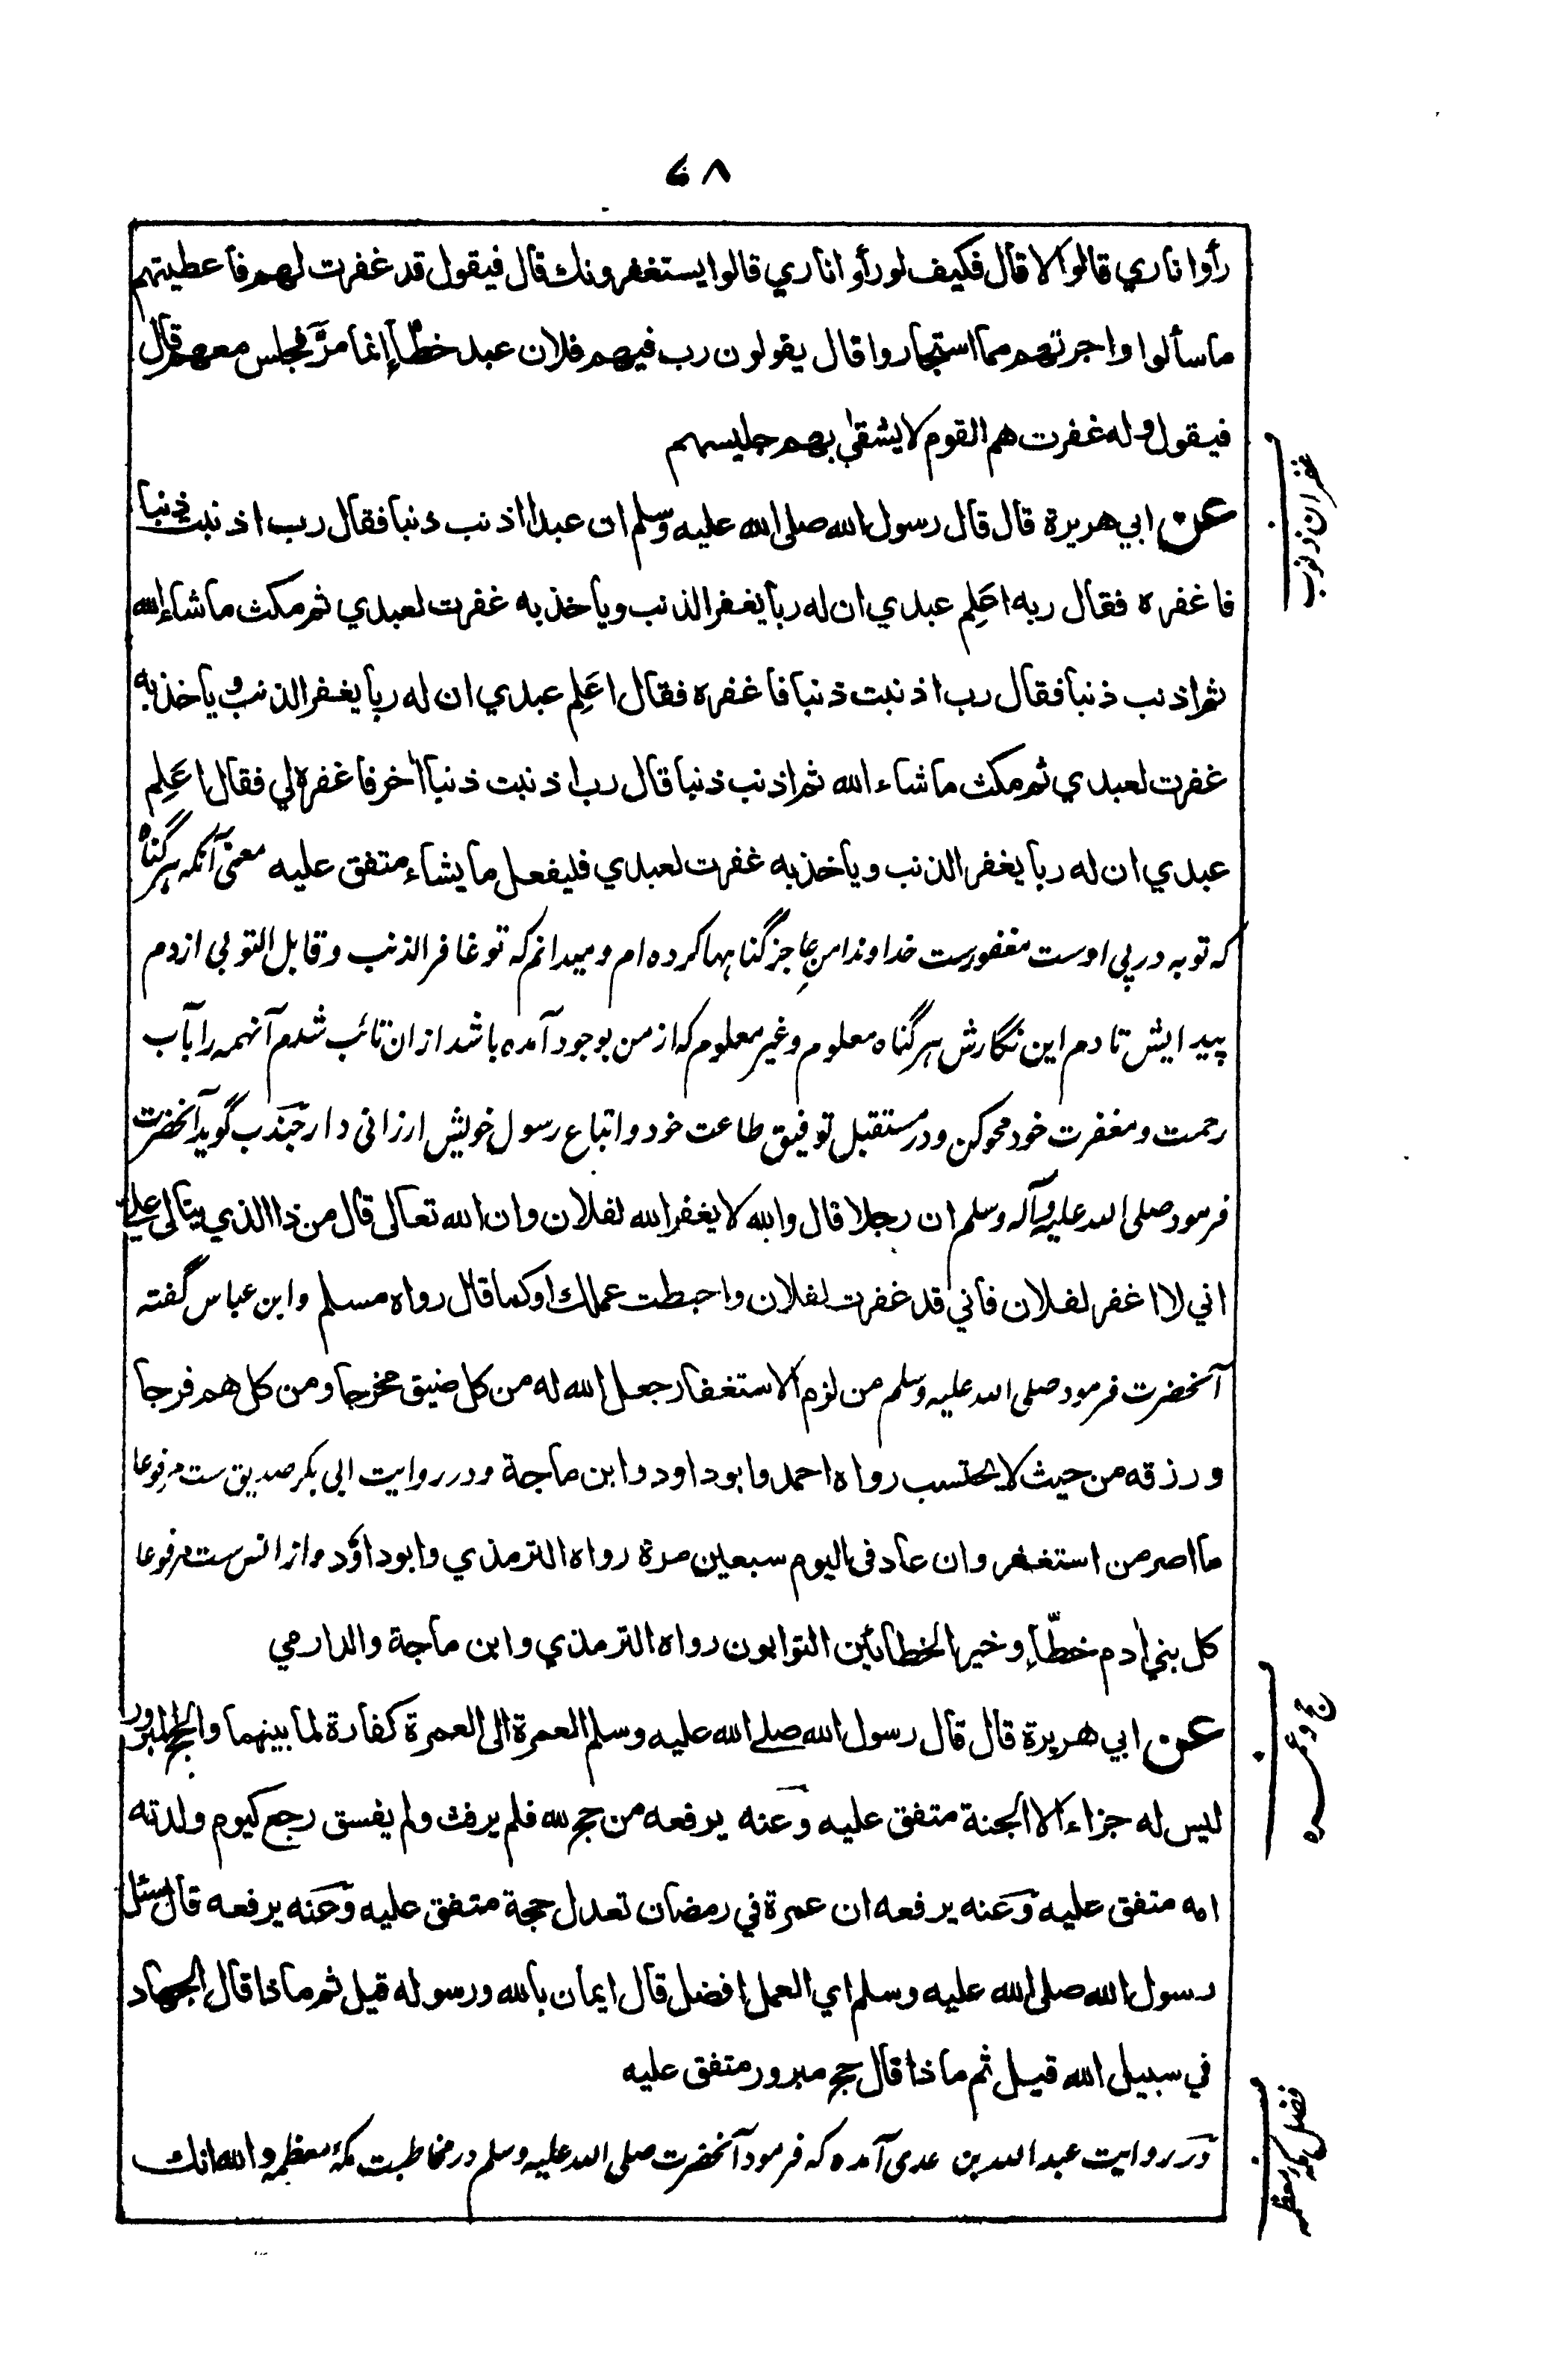 ۶۸
رأوا ناري قالوا لا قال فكيف لو رأوا ناري قالوا يستغفرونك قال فيقول قد غفرت لهم فاعطيتهم
ما سألوا واجرتهم مما استجاروا قال يقولون رب فيهم فلان عبد خطّاء إنما مرَّ فجلس معهم قال
فيقول وله غفرت هم القوم لا يشقىٰ بهم جليسهم
غفران ذنوب
عن ابي هريرة قال قال رسول الله صلى الله عليه وسلم ان عبدا اذنب ذنبا فقال رب اذنبت ذنبا
فاغفره فقال ربه اعَلِم عبدي ان له ربا يغفر الذنب وياخذ به غفرت لعبدي ثم مكث ما شاء الله
ثم اذنب ذنبا فقال رب اذنبت ذنبا فاغفره فقال اعَلِم عبدي ان له ربا يغفر الذنب وياخذ به
غفرت لعبدي ثم مكث ما شاء الله ثم اذنب ذنبا قال رب اذنبت ذنبا اٰخر فاغفره لي فقال اعَلِم
عبدي ان له ربا يغفر الذنب وياخذ به غفرت لعبدي فليفعل ما يشاء متفق عليه معنی آنکه هر گناه
که توبه در پی اوست مغفورست خداوندا من عاجز گناهها کرده ام و میدانم که تو غافر الذنب و قابل التوبی از دم
پیدایش تا دم این نگارش هر گناه معلوم و غیر معلوم که از من بوجود آمده باشد ازان تائب شدم آنهمه را بآب
رحمت و مغفرت خود محو کن و در مستقبل توفیق طاعت خود و اتباع رسول خویش ارزانی دار جندب گوید آنحضرت
فرمود صلی الله علیه وآله وسلم ان رجلا قال والله لا يغفر الله لفلان وان الله تعالى قال من ذا الذي يتالى علي
اني لا اغفر لفلان فاني قد غفرت لفلان واحبطت عملك او كما قال رواه مسلم و ابن عباس گفته
آنحضرت فرمود صلی الله علیه وسلم من لزم الاستغفار جعل الله له من كل ضيق مخرجا ومن كل هم فرجا
ورزقه من حيث لا يحتسب رواه احمد وابوداود وابن ماجة و در روایت ابی بکر صدیق ست مرفوعا
ما اصر من استغفر وان عاد فى اليوم سبعين مرة رواه الترمذي وابوداؤد و از انس ست مرفوعا
كل بني اٰدم خطّاء وخير الخطائين التوابون رواه الترمذي وابن ماجة والدارمي
حج و عمره
عن ابي هريرة قال قال رسول الله صلى الله عليه وسلم العمرة الى العمرة كفارة لما بينهما والحج المبرور
ليس له جزاء الا الجنة متفق عليه وعنه يرفعه من حج لله فلم يرفث ولم يفسق رجع كيوم ولدته
امه متفق عليه وعنه يرفعه ان عمرة في رمضان تعدل حجة متفق عليه وعنه يرفعه قال سئل
رسول الله صلى الله عليه وسلم اي العمل افضل قال ايمان بالله ورسوله قيل ثم ماذا قال الجهاد
في سبيل الله قيل ثم ماذا قال حج مبرور متفق عليه
فضل مکه معظمه
و در روایت عبد الله بن عدی آمده که فرمود آنحضرت صلی الله علیه وسلم در مخاطبت مکۀ معظمه والله انك